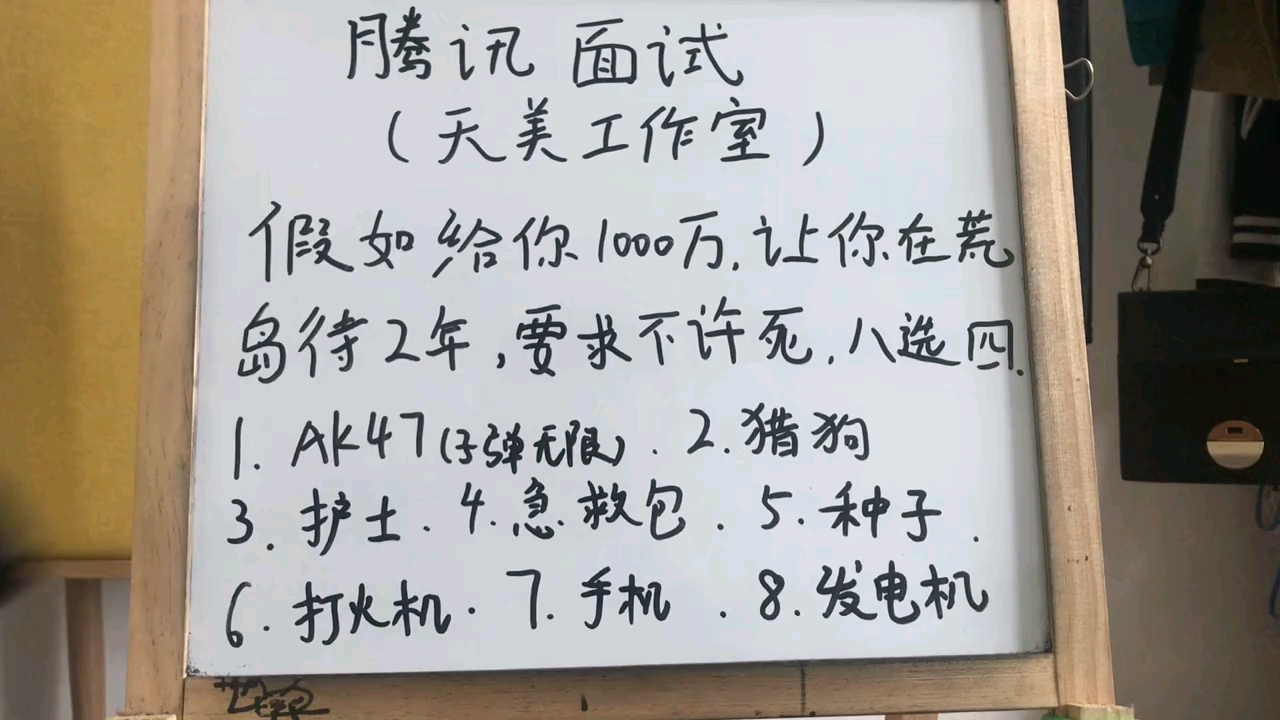 腾讯 面试
（天美工作室）
假如给你1000万,让你在荒
岛待2年,要求不许死,八选四.
1. AK47(子弹无限). 2.猎狗
3. 护士. 4.急救包. 5.种子.
6. 打火机. 7.手机. 8.发电机